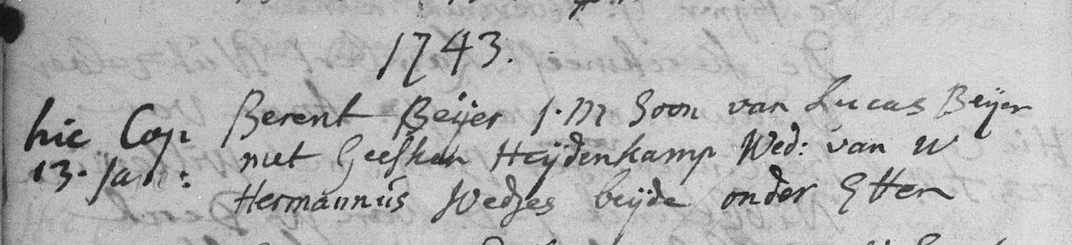 1743.
hic Cop Berent Beijer J.M Soon van Lucas Beijer
13. Jan: met Geesken Heijdenkamp Wed: van W
Hermannus Wedjes beijde onder Etten